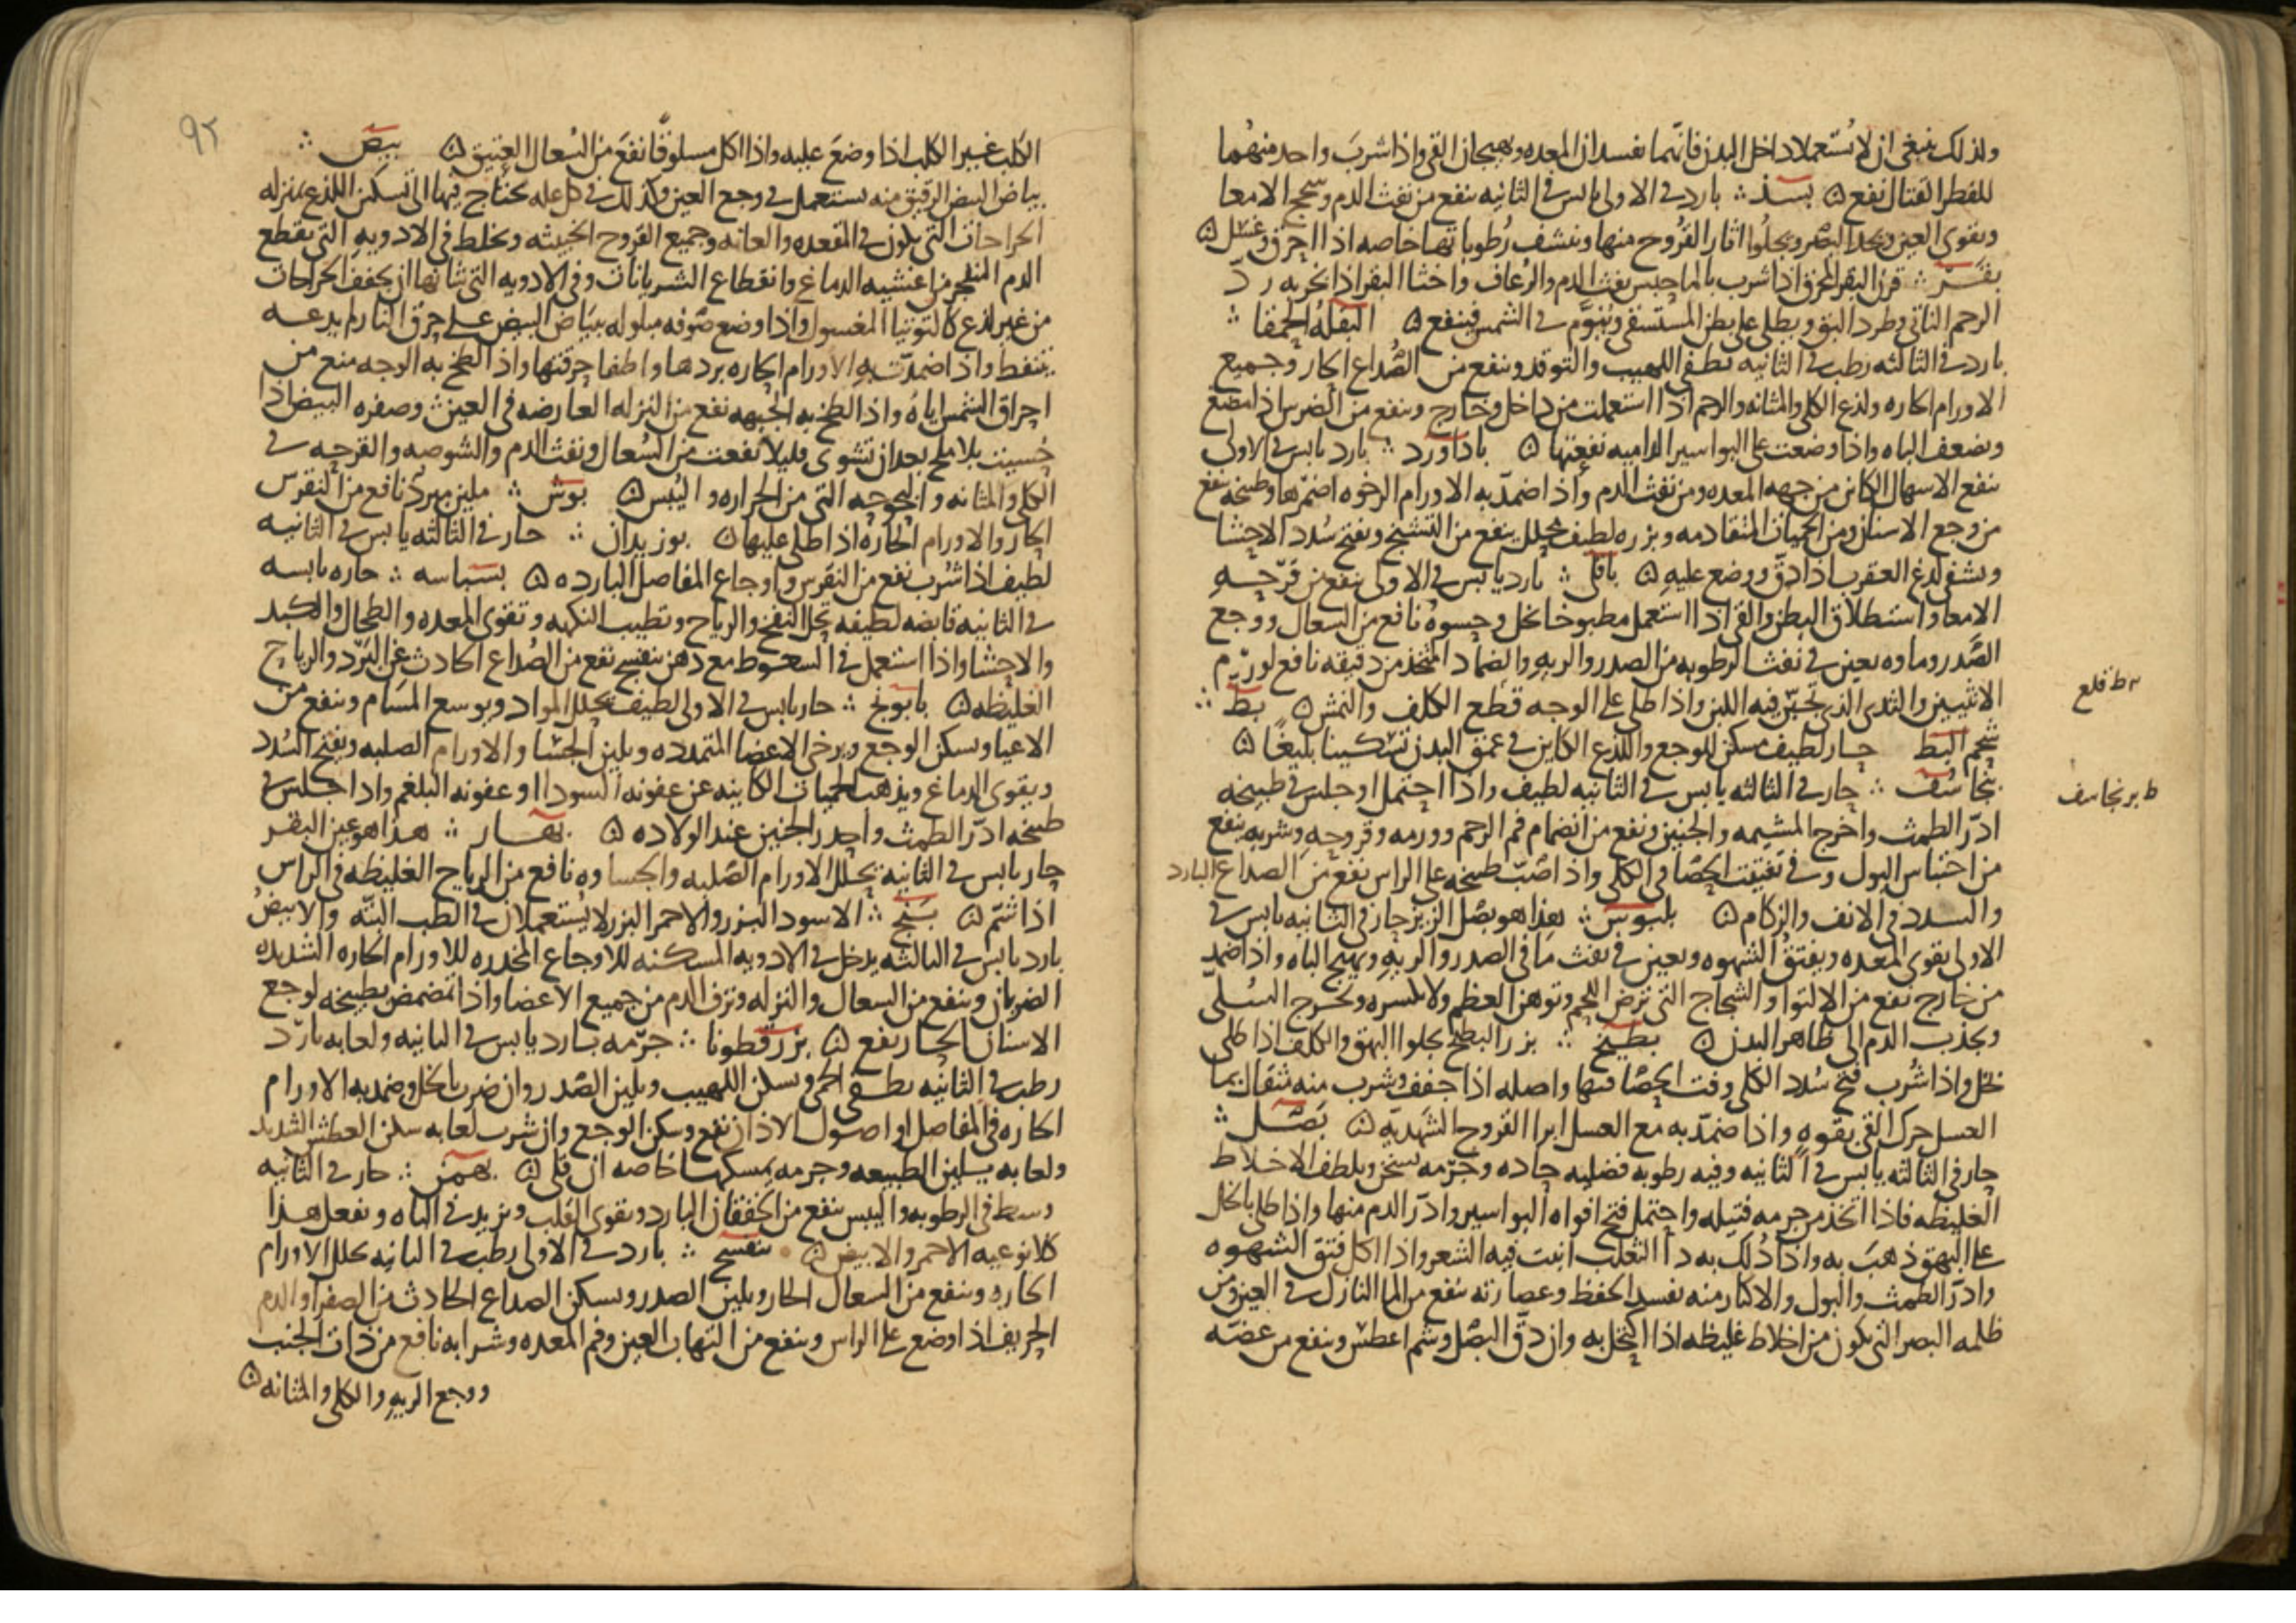 ولذلك ينبغي ان لا يستعملا داخل البدن فانهما يفسدان المعده ويهيجان القي واذا شرب واحد منهما
للفطر القتال نفع ۞ بسذ ؞ بارد في الاولى يابس في الثانيه ينفع من نفث الدم وسحج الامعا
ويقوى العين ويحد البصر ويجلوا اثار القروح منها وينشف رطوباتها خاصه اذا احرق وغسل ۞
بقر ؞ قرن البقر المحرق اذا شرب بالما حبس نفث الدم والرعاف واخثا البقر اذا بخر به رد
الرحم الناتي وطرد البق ويطلى على بطن المستسقى وينوم في الشمس فينفع ۞ البقله الحمقا ؞
بارد في الثالثه رطب في الثانيه تطفى اللهيب والتوقد وينفع من الصداع الحار وجميع
الاورام الحاره ولذع الكلى والمثانه والرحم اذا استعملت من داخل وخارج وينفع من الضرس اذا مضغ
ويضعف الباه واذا وضعت على البواسير الداميه نفعتها ۞ باداورد ؞ بارد يابس في الاولى
ينفع الاسهال الكائن من جهه المعده ومن نفث الدم واذا ضمد به الاورام الرخوه اضمرها وطبيخه ينفع
من وجع الاسنان ومن الحميات المتقادمه وبزره لطيف محلل ينفع من التشنج ويفتح سدد الاحشا
ويشفى لدغ العقرب اذا دق ووضع عليه ۞ باقلى ؞ بارد يابس في الاولى ينفع من قرحه
الامعا واستطلاق البطن والقى اذا استعمل مطبوخا بخل وحسوه نافع من السعال ووجع
الصدر وماوه يعين في نفث الرطوبه من الصدر والريه والضماد المتخذ من دقيقه نافع لورم
الانثيين والثدى الذى تجبن فيه اللبن واذا طلى على الوجه قطع الكلف والنمش ۞ بط ؞
شحم البط حار لطيف مسكن للوجع واللذع الكاين في عمق البدن تسكينا بليغا ۞
بنجاسف ؞ حار في الثالثه يابس في الثانيه لطيف واذا احتمل او جلس في طبيخه
ادر الطمث واخرج المشيمه والجنين ونفع من انضمام فم الرحم وورمه وقروحه وشربه ينفع
من احتباس البول وفي تفتيت الحصا في الكلى واذا صب طبيخه على الراس نفع من الصداع البارد
والسدد في الانف والزكام ۞ بلبوس ؞ هذا هو بصل الزيز حار في الثانيه يابس في
الاولى يقوى المعده ويفتق الشهوه ويعين في نفث ما في الصدر والريه ويهيج الباه واذا ضمد
من خارج نفع من الالتوا والشجاج التى ترض اللحم وتوهن العظم ولا تكسره ويخرج السلى
ويجذب الدم الى ظاهر البدن ۞ بطيخ ؞ بزر البطيخ يجلوا البهق والكلف اذا طلى
بخل واذا شرب فتح سدد الكلى وفت الحصا فيها واصله اذا جفف وشرب منه مثقالان بما
العسل حرك القى بقوه واذا ضمد به مع العسل ابرا القروح الشهديه ۞ بصل ؞
حار في الثالثه يابس في الثانيه وفيه رطوبه فضليه حاده وجرمه يسخن ويلطف الاخلاط
الغليظه فاذا اتخذ من جرمه فتيله واحتمل فتح افواه البواسير وادر الدم منها واذا طلى بالخل
على البهق ذهب به واذا دلك به دا الثعلب انبت فيه الشعر واذا اكل فتق الشهوه
وادر الطمث والبول والاكثار منه يفسد الحفظ وعصارته ينفع من الما النازل في العين ومن
ظلمه البصر التى يكون من اخلاط غليظه اذا اكتحل به وان دق البصل وشم اعطش وينفع من عضه
٢ ط قلع
ط برنجاسف
٩٢
الكلب غير الكلب اذا وضع عليه واذا اكل مسلوقا نفع من السعال العتيق ۞ بيض ؞
بياض البيض الرقيق منه يستعمل في وجع العين وكذلك في كل عله يحتاج فيها الى تسكين اللذع بمنزله
الجراحات التى يكون في المقعده والعانه وجميع القروح الخبيثه ويخلط في الادويه التى يقطع
الدم المنفجر من اغشيه الدماغ وانقطاع الشريانات وفي الادويه التى شانها ان يجفف الجراحات
من غير لذع كالتوتيا المغسول واذا وضع صوفه مبلوله ببياض البيض على حرق النار لم يدعه
يتنفط واذا ضمدت به الاورام الحاره بردها واطفا حرقتها واذا لطخ به الوجه منع من
احراق الشمس اياه واذا لطخ به الجبهه نفع من النزله العارضه في العين ؞ وصفره البيض اذا
حسيت بلا ملح بعد ان تشوى قليلا نفعت من السعال ونفث الدم والشوصه والقرحه في
الكلى والمثانه والبحوحه التى من الحراره واليبس ۞ بوش ؞ ملين مبرد نافع من النقرس
الحار والاورام الحاره اذا طلى عليها ۞ بوزيدان ؞ حار في الثالثه يابس في الثانيه
لطيف اذا شرب نفع من النقرس واوجاع المفاصل البارده ۞ بسباسه ؞ حاره يابسه
في الثانيه قابضه لطيفه تحل النفخ والرياح وتطيب النكهه وتقوى المعده والطحال والكبد
والاحشا واذا استعمل في السعوط مع دهن بنفسج نفع من الصداع الحادث عن البرد والرياح
الغليظه ۞ بابونج ؞ حار يابس في الاولى لطيف يحلل المواد ويوسع المسام وينفع من
الاعيا ويسكن الوجع ويرخى الاعضا المتمدده ويلين الجسا والاورام الصلبه ويفتح السدد
ويقوى الدماغ ويذهب الحميات الكاينه عن عفونه السودا او عفونه البلغم واذا جلس في
طبيخه ادر الطمث واحدر الجنين عند الولاده ۞ بهار ؞ هذا هو عين البقر
حار يابس في الثانيه يحلل الاورام الصلبه والجساوه نافع من الرياح الغليظه في الراس
اذا شم ۞ بنج ؞ الاسود البزر والاحمر البزر لا يستعملان في الطب البته والابيض
بارد يابس في الثالثه يدخل في الادويه المسكنه للاوجاع المخدره للاورام الحاره الشديده
الضربان وينفع من السعال والنزله ونزف الدم من جميع الاعضا واذا تمضمض بطبيخه لوجع
الاسنان الحار نفع ۞ بزرقطونا ؞ جرمه بارد يابس في الثانيه ولعابه بارد
رطب في الثانيه يطفى الحمى ويسكن اللهيب ويلين الصدر وان ضرب بالخل وضمد به الاورام
الحاره في المفاصل او اصول الاذان نفع وسكن الوجع وان شرب لعابه سكن العطش الشديد
ولعابه يسلين الطبيعه وجرمه يمسكها خاصه ان قلى ۞ بهمن ؞ حار في الثانيه
وسط في الرطوبه واليبس ينفع من الخفقان البارد ويقوى القلب ويزيد في الباه ويفعل هذا
كلا نوعيه الاحمر والابيض ۞ بنفسج ؞ بارد في الاولى رطب في الثانيه يحلل الاورام
الحاره وينفع من السعال الحار ويلين الصدر ويسكن الصداع الحادث من الصفرا والدم
الحريف اذا وضع على الراس وينفع من التهاب العين وفم المعده وشرابه نافع من ذات الجنب
ووجع الريه والكلى والمثانه ۞